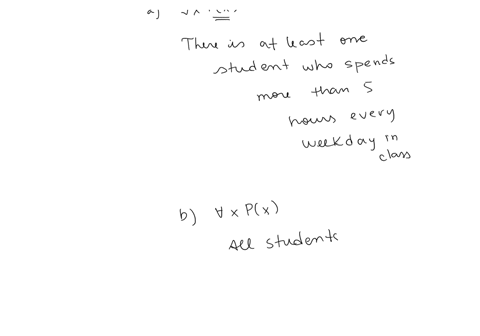 a)
There is at least one
student who spends
more than 5
hours every
weekday in
class
b) ∀ x P(x)
All students